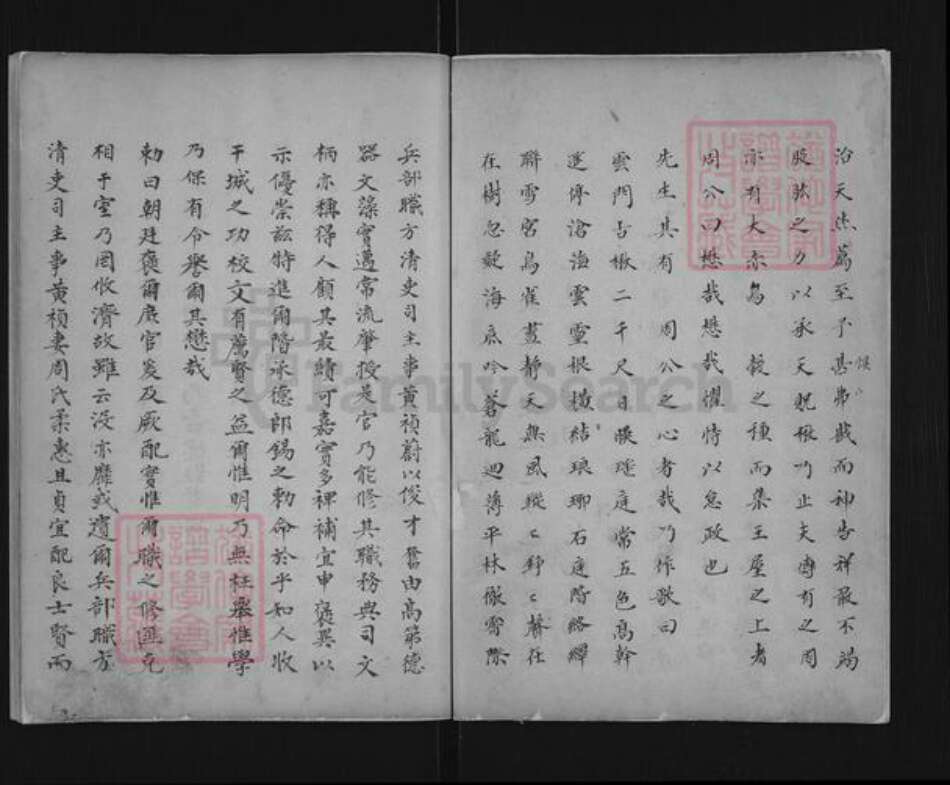 治天恭爲至予甚弗戩而神告祥最不竭
股肱之力以承天貺楸乃止夫傳有之周
亦有大赤烏　穀之種而集王屋之上者
周公曰懋哉懋哉懼恃以怠政也
先生其有　周公之心者哉乃作歌曰
雲門古楸二千尺日暎瑤庭常五色高幹
遙停滄海雲靈根橫結琅琊石庭階絡繹
聯雪宮鳥雀晝靜天無風瑽瑽琤琤聲在
在樹忽疑海底吟蒼龍迴薄平林徹霄際
兵部職方清吏司主事黃禎蔚以俊才奮由高第德
器文藻實邁常流肇授是官乃能修其職務典司文
柄亦稱得人顧其最績可嘉實多裨補宜申褒異以
示優崇玆特進爾階承德郎錫之勅命於乎知人收
干城之功校文有薦賢之益爾惟明乃無枉舉惟學
乃保有令譽爾其懋哉
勅曰朝廷褒爾庶官爰及厥配實惟爾職之修匪克
相于室乃罔攸濟故雖云沒亦靡或遺爾兵部職方
清吏司主事黃禎妻周氏柔惠且貞宜配良士賢而
FamilySearch